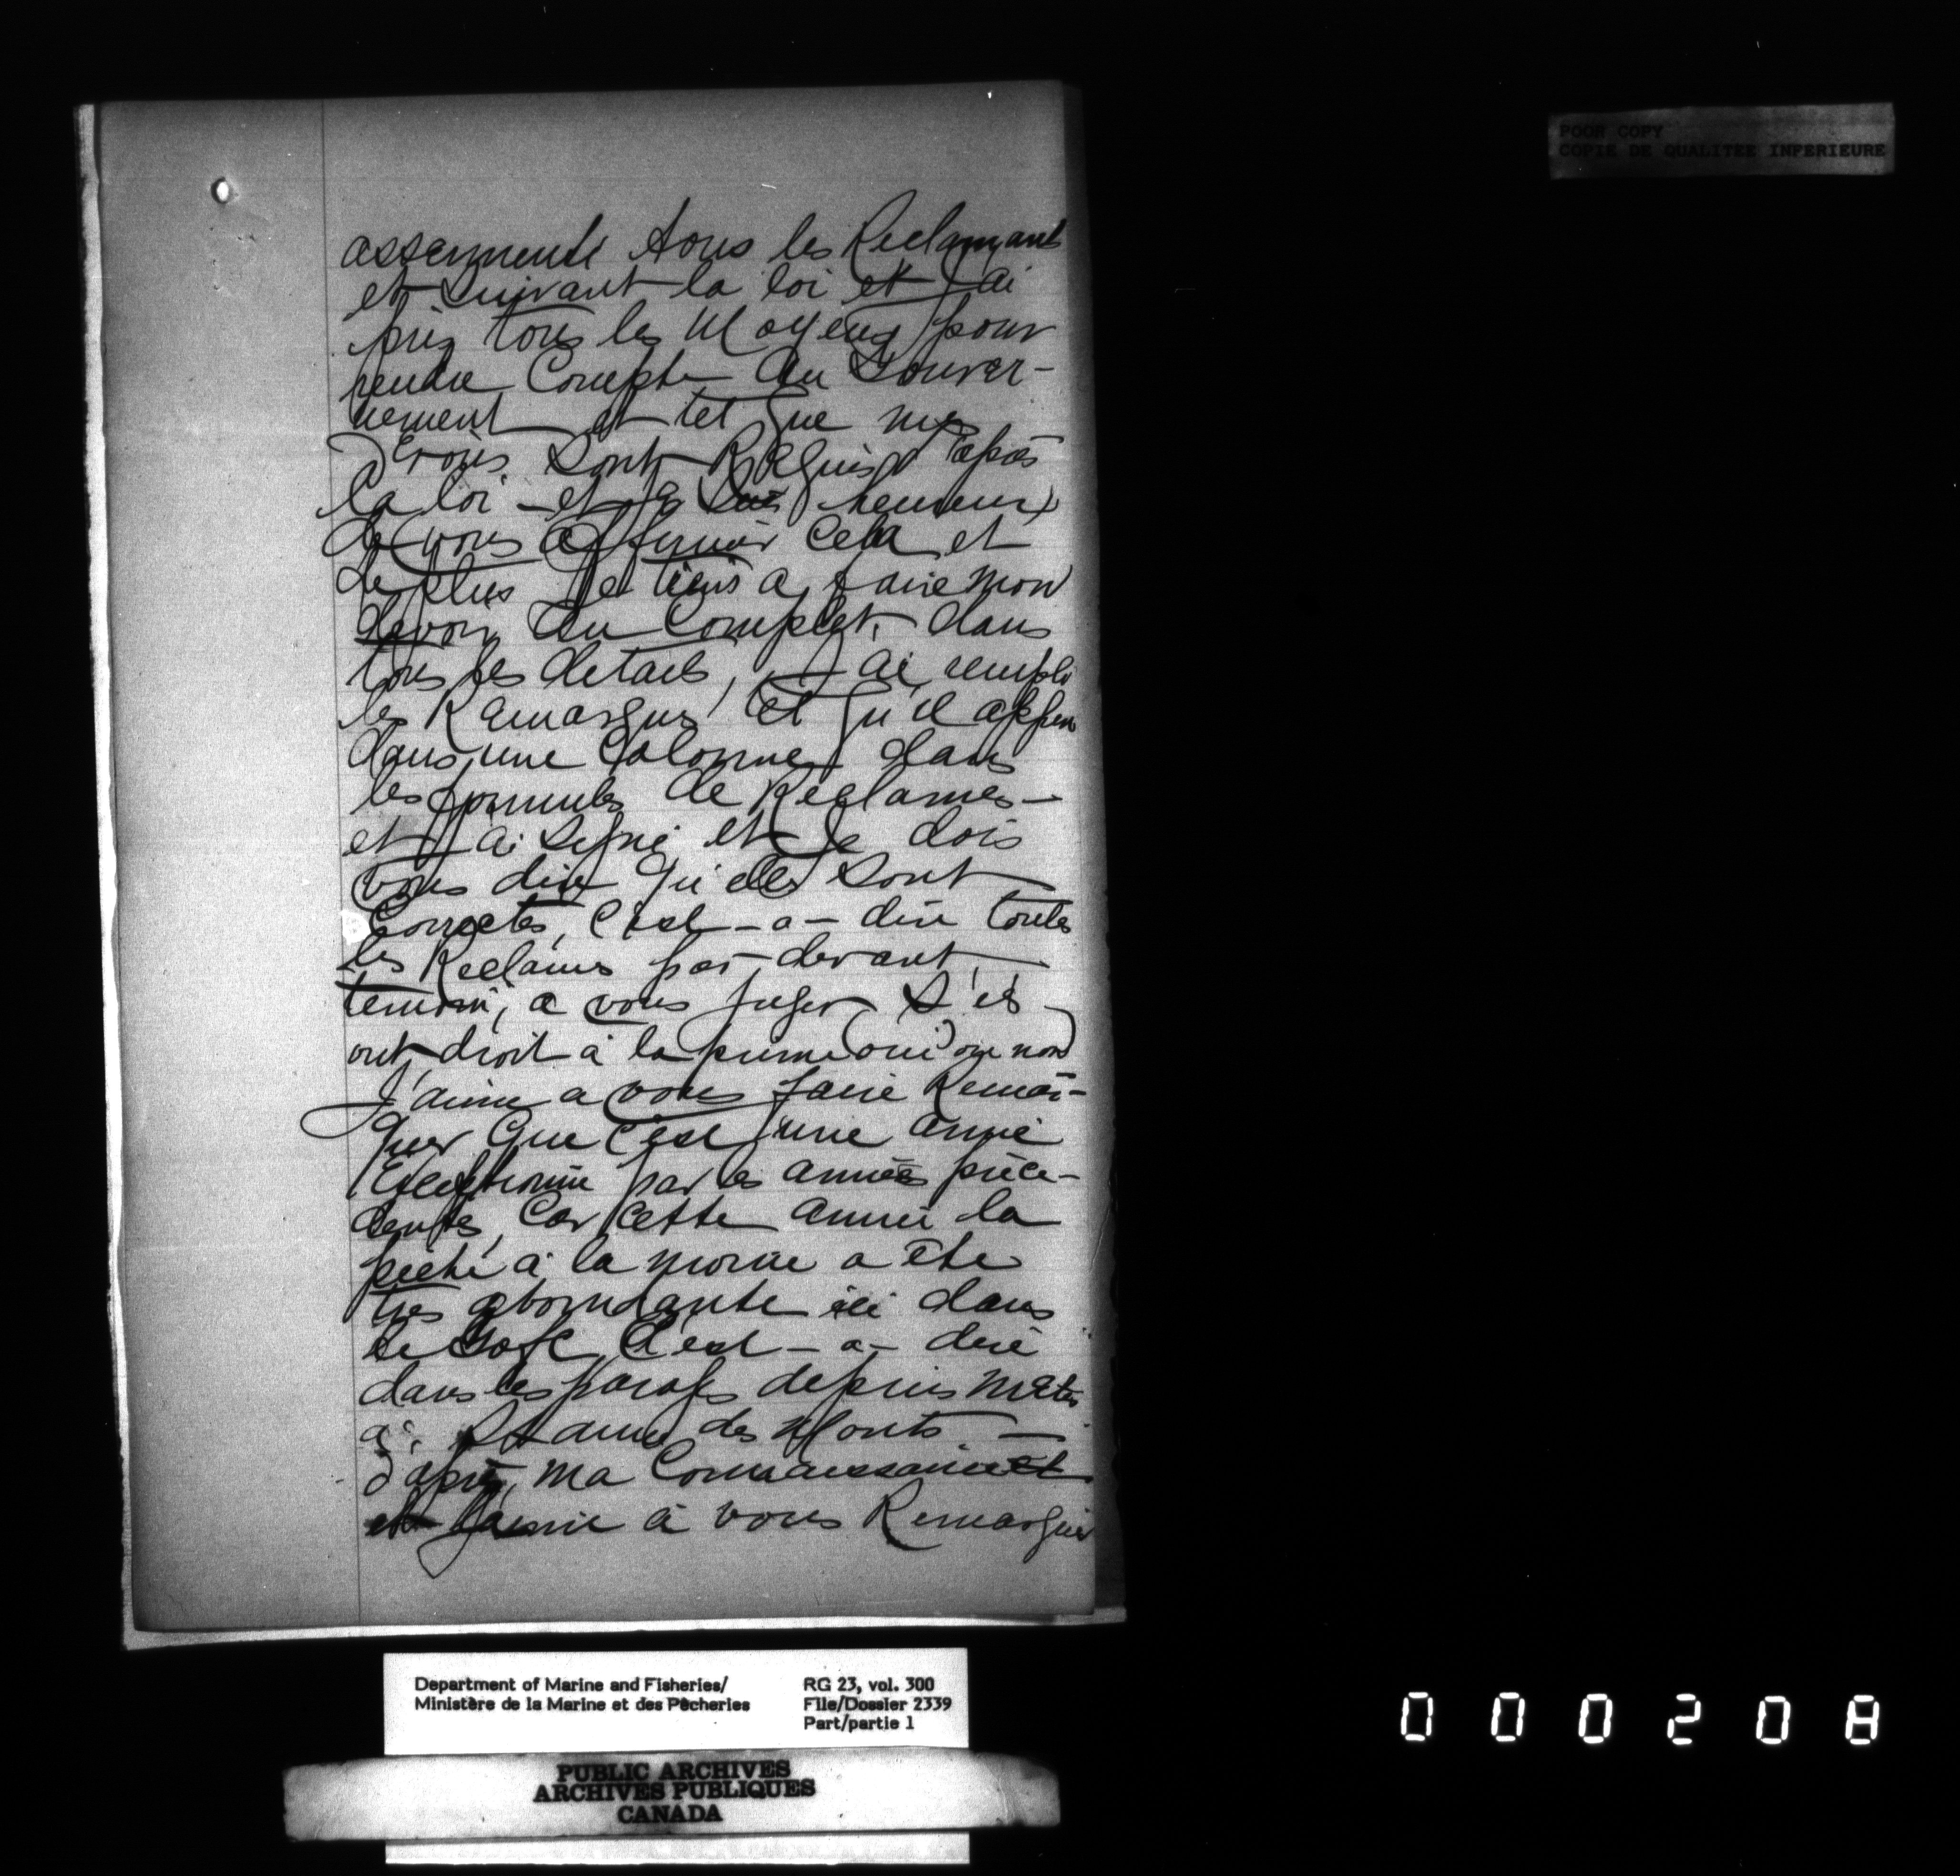 assermenté tous les Reclamant
et suivant la loi et J'ai
pris tous les Moyens pour
rendre Compte au Gouver-
nement et tel que mes
devoirs sont Requis d'après
la loi - et je suis heureux
de vous affirmer cela et
de plus Je tiens a faire mon
devoir au Complet, dans
tous les details, J'ai rempli
les Remarques tel qu'il
dans une Colonne dans
les formules de Réclames -
et J'ai signé et Je dois
vous dire qu'elles sont
Correctes, C'est-a-dire toutes
les Reclames par devant
temoin, a vous juger S'ils
ont droit à la prime (oui) ou non
J'aime a vous faire Remar-
quer que C'est une année
par les années préce-
dentes, Car cette année la
pêche à la morue a été
très abondante ici dans
le Golfe C'est-a-dire
dans les parages depuis Matis
à Ste anne des Monts -
d'après, ma Connaissance et
et J'aime à vous Remarquer
POOR COPY
COPIE DE QUALITEE INFERIEURE
Department of Marine and Fisheries/
Ministère de la Marine et des Pêcheries
RG 23, vol. 300
File/Dossier 2339
Part/partie 1
PUBLIC ARCHIVES
ARCHIVES PUBLIQUES
CANADA
000208